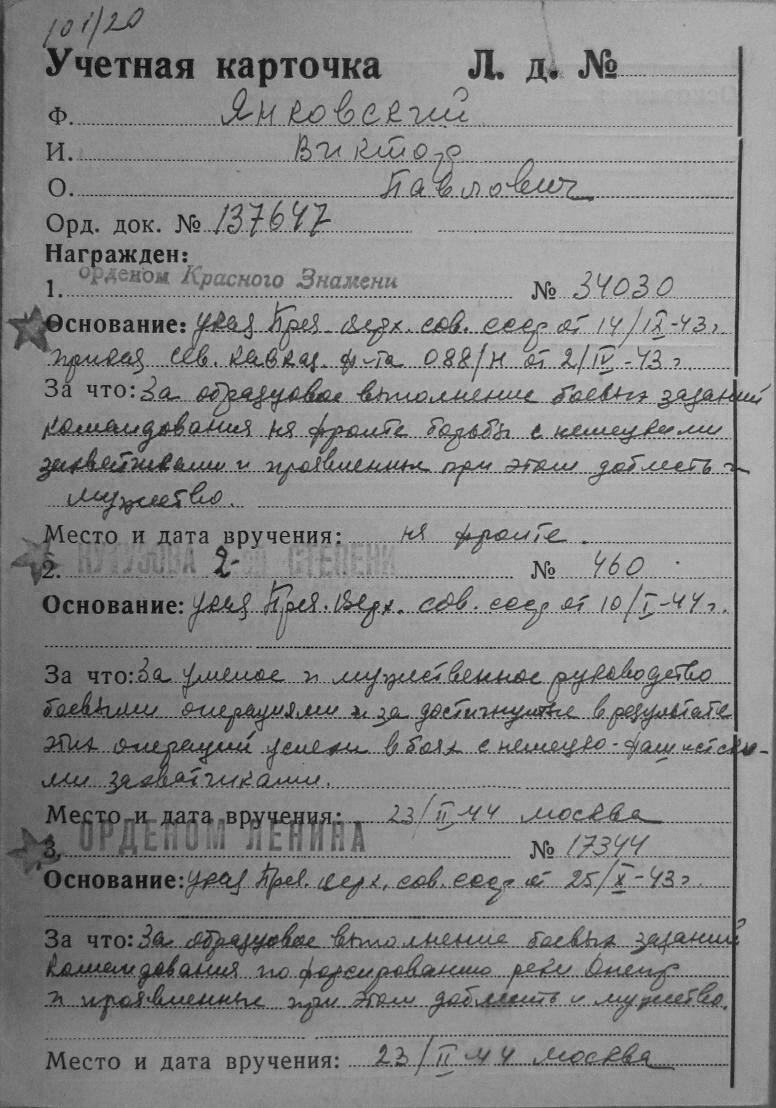 101/20
Учетная карточка Л. д. №
Ф. Янковский
И. Виктор
О. Павлович
Орд. док. № 137647
Награжден:
орденом Красного Знамени
1. № 34030
Основание: указ През. верх. сов. ссср от 14/IX-43г.
приказ Сев. кавказ. ф-та 088/н от 2/IV-43г.
За что: За образцовое выполнение боевых заданий
командования на фронте борьбы с немецкими
захватчиками и проявленные при этом доблесть и
мужество.
Место и дата вручения: на фронте.
КУТУЗОВА 2-ой СТЕПЕНИ
2. № 460
Основание: указ През. Верх. сов. ссср от 10/I-44г.
За что: За умелое и мужественное руководство
боевыми операциями и за достигнутые в результате
этих операций успехи в боях с немецко-фашистски-
ми захватчиками.
Место и дата вручения: 23/II-44 москва
ОРДЕНОМ ЛЕНИНА
3. № 17344
Основание: указ През. верх. сов. ссср от 25/X-43г.
За что: За образцовое выполнение боевых заданий
командования по форсированию реки Днепр
и проявленные при этом доблесть и мужество.
Место и дата вручения: 23/II-44 москва